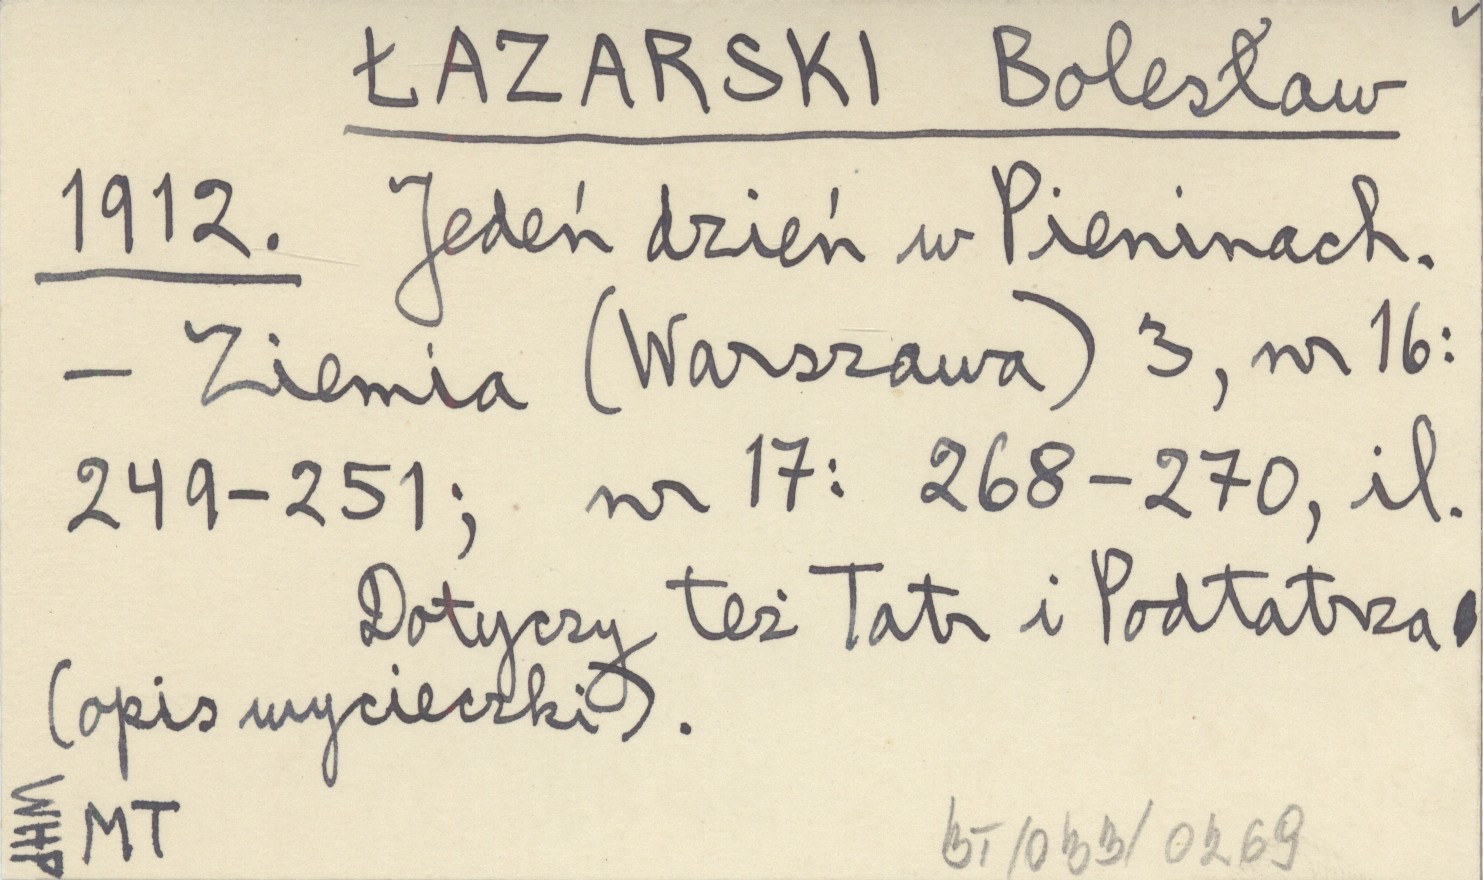 ŁAZARSKI Bolesław
1912. Jedeń dzień w Pieninach.
– Ziemia (Warszawa) 3, nr 16:
249–251; nr 17: 268–270, il.
Dotyczy też Tatr i Podtatrza
(opis wycieczki).
WHP
MT
BT/033/0269